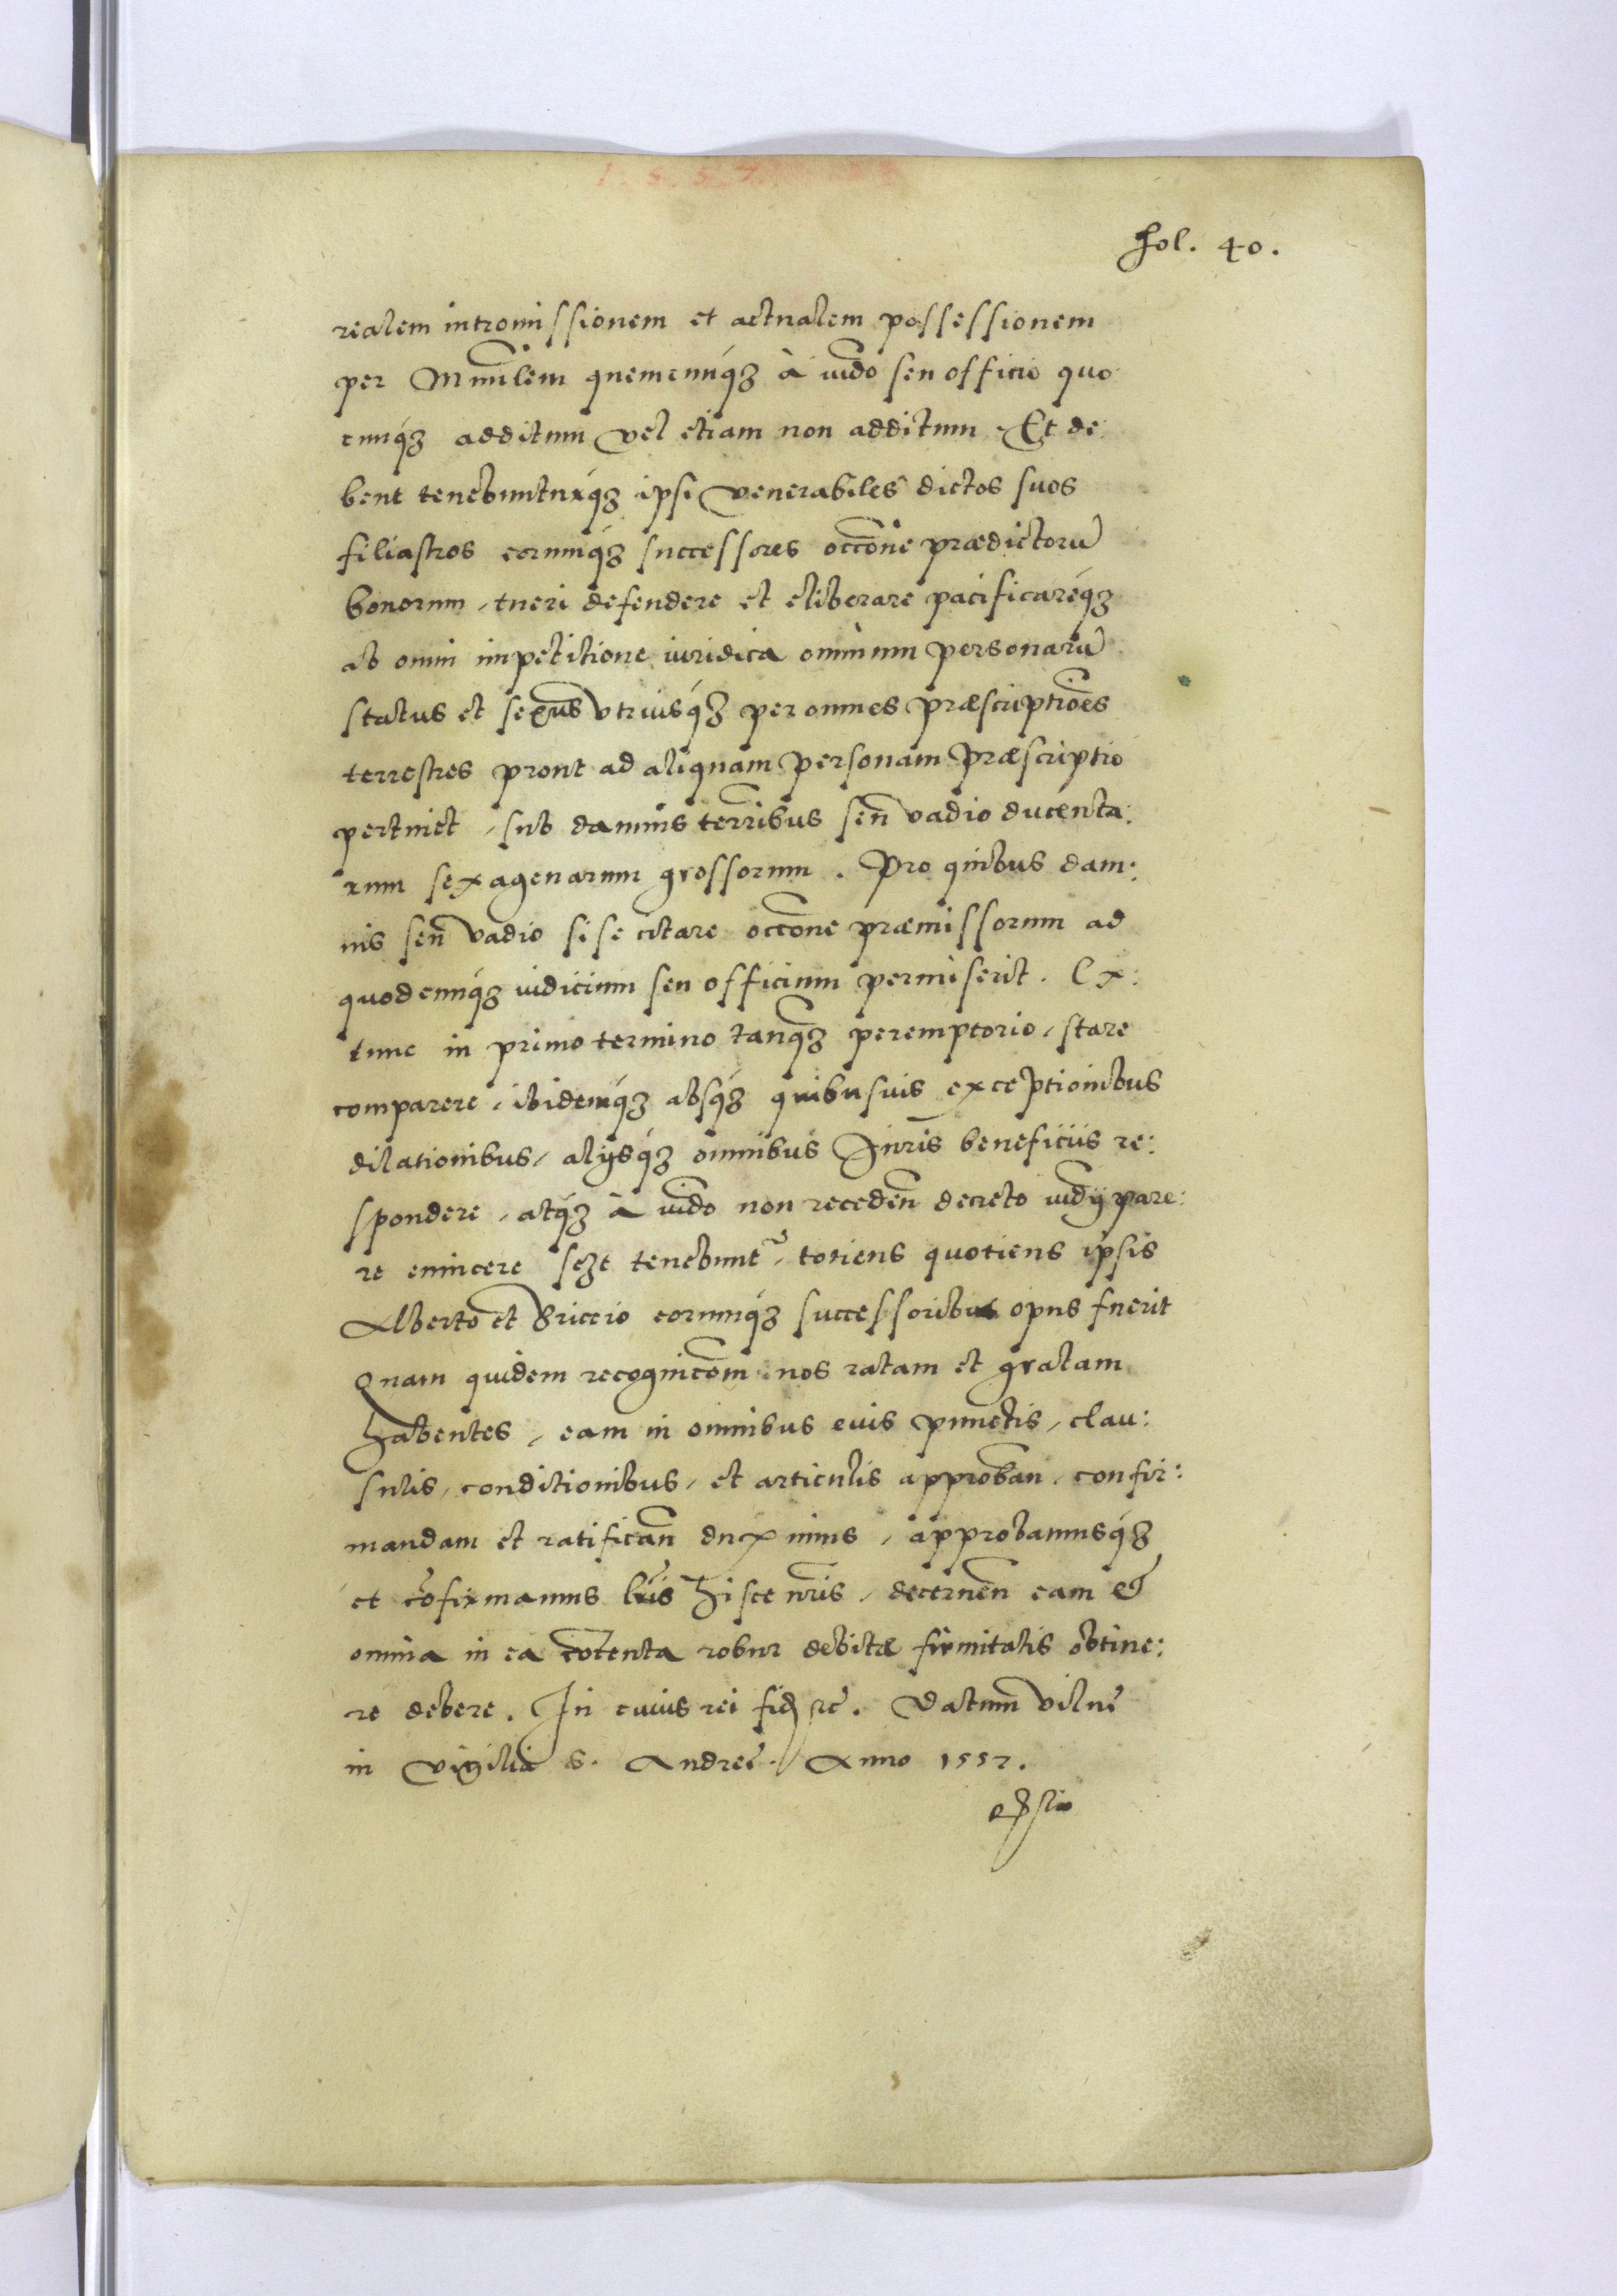 1. 5. 5. 7.
Fol. 40.
realem intromissionem et actualem possessionem
per Minrlem quemcunq3 à iudo seu officio quo
cunq3 additum vel etiam non additum. Et de:
bent tenebunturq3 ipsi venerabiles dictos suos
filiastros eorumq3 successores occone prædictorū
bonorum, tueri defendere et eliberare pacificareq3
ab omni impetitione iuridica omnium personarū
status et sexus utriusq3 per omnes præscriptiones
terrestres prout ad aliquam personam præscriptio
pertinet, sub damnis terribus seu vadio ducenta:
rum sexagenarum grossorum. Pro quibus dam:
nis seu vadio si se citare occone præmissorum ad
quodcunq3 iudicium seu officium permiserit. Ex:
tunc in primo termino tanq3 peremptorio, stare
comparere, ibidemq3 absq3 quibusuis exceptionibus
dilationibus, alijsq3 omnibus Juris beneficiis re:
spondere, atq3 à iudo non receden decreto iudij pare:
re euincere tenebunt, totiens quotiens ipsis
Alberto et Briccio eorumq3 successoribus opus fuerit
Quam quidem recognicom nos ratam et gratam
habentes, eam in omnibus euis punctis, clau:
sulis, conditionibus, et articulis approban, confir:
mandam et ratifican duximus, approbamusq3
et cōfirmamus lris hisce nris, decernen eam et
omnia in ea cōtenta robur debitæ firmitatis obtine:
re debere. In cuius rei fid etc. Datum Vilnę
in Vigilia S. Andreę. Anno 1557.